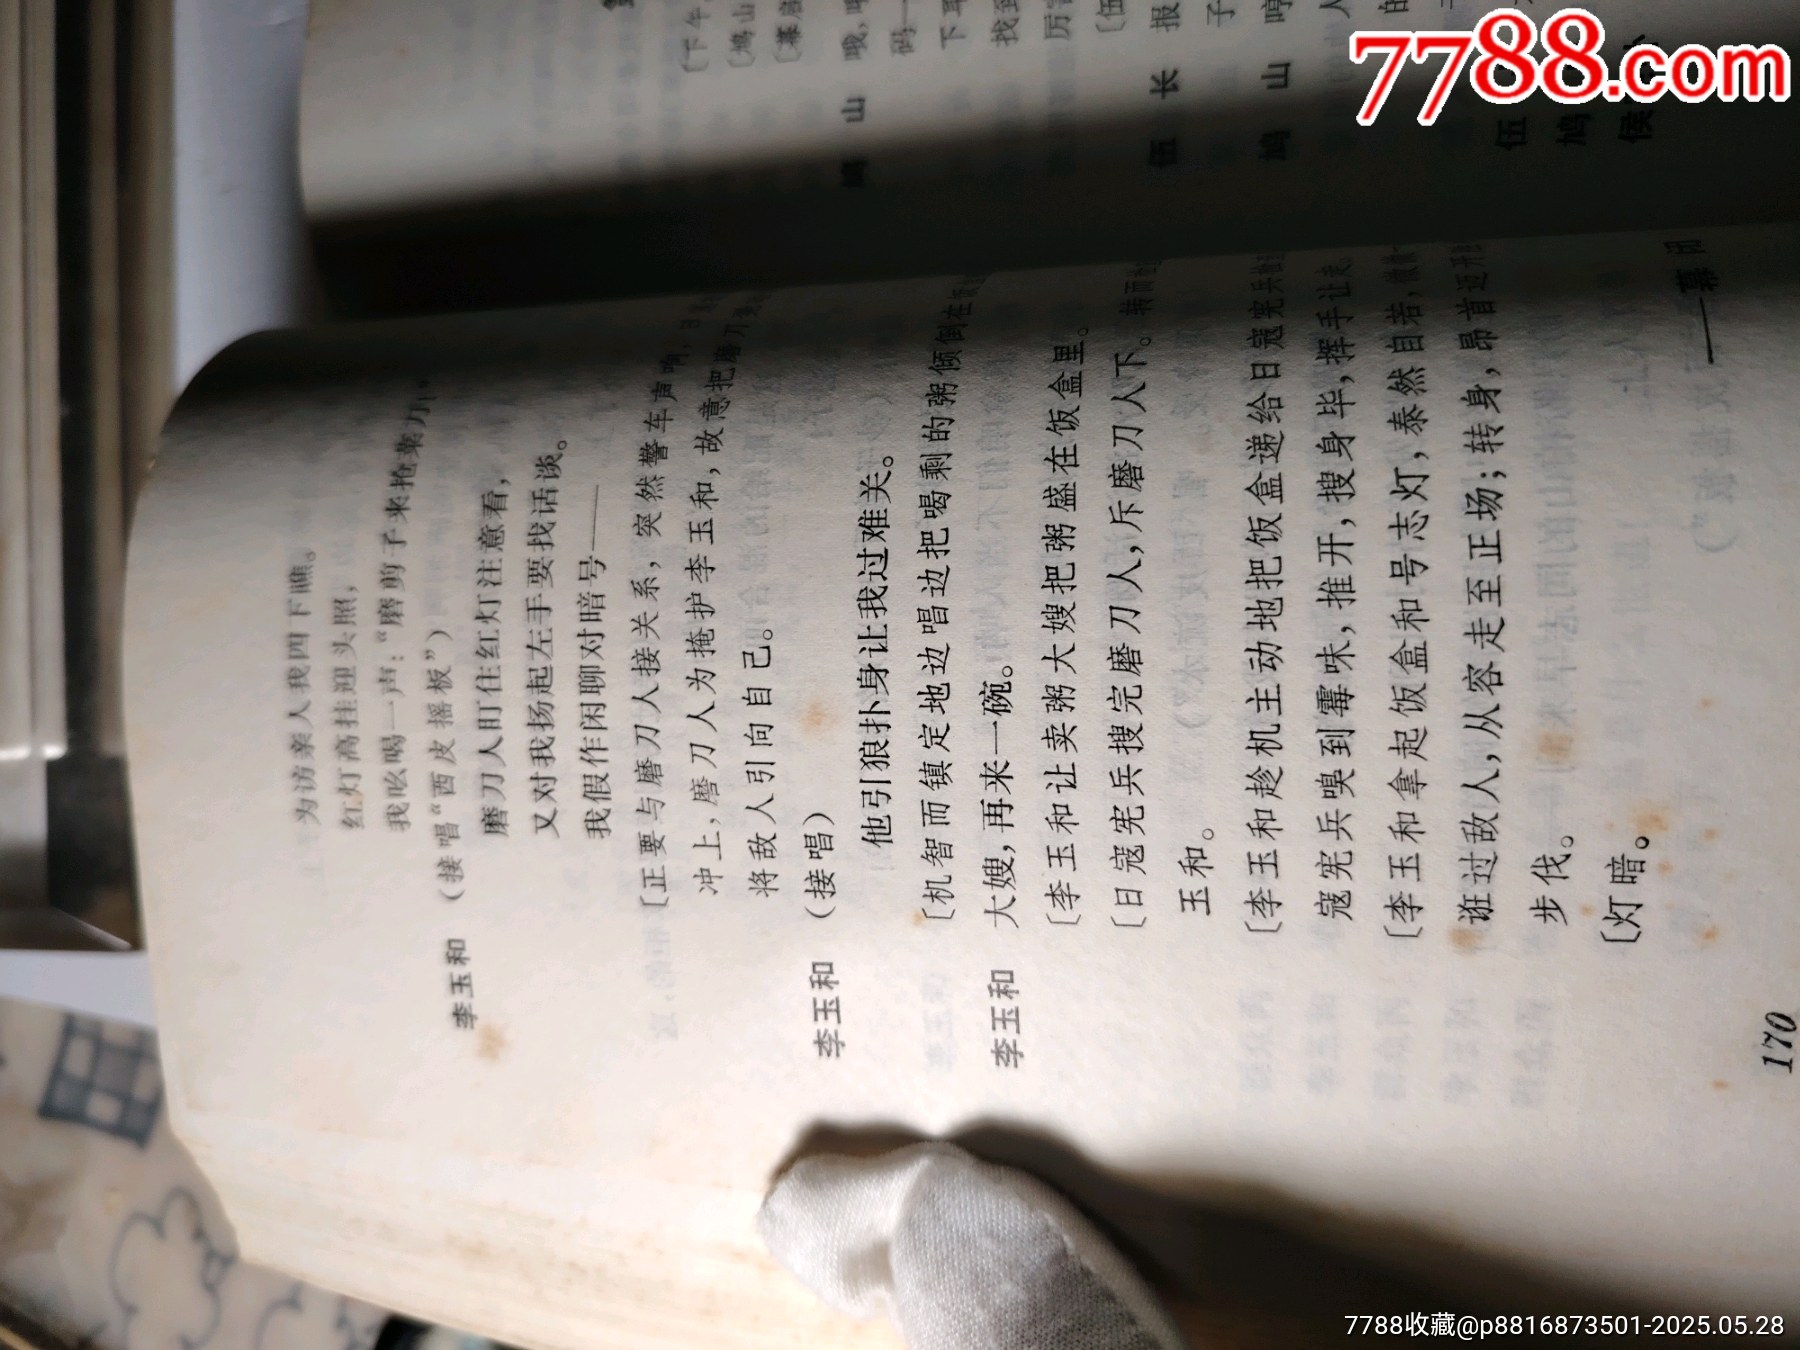 为访亲人我四下瞧。
红灯高挂迎头照，
我吆喝一声：“磨剪子来抢菜刀”。
李玉和 （接唱“西皮摇板”）
磨刀人盯住红灯注意看，
又对我扬起左手要找话谈。
我假作闲聊对暗号——
〔正要与磨刀人接关系，突然警车声响，日
冲上，磨刀人为掩护李玉和，故意把磨刀
将敌人引向自己。
李玉和 （接唱）
他引狼扑身让我过难关。
〔机智而镇定地边唱边把喝剩的粥倾倒在饭
李玉和 大嫂，再来一碗。
〔李玉和让卖粥大嫂把粥盛在饭盒里。
〔日寇宪兵搜完磨刀人，斥磨刀人下。转而
玉和。
〔李玉和趁机主动地把饭盒递给日寇宪兵
寇宪兵嗅到霉味，推开，搜身毕，挥手让走。
〔李玉和拿起饭盒和号志灯，泰然自若，
诳过敌人，从容走至正场；转身，昂首迈开
步伐。
〔灯暗。
——幕闭
170
〔下午。
〔鸠山
〔幕启
鸠 山 哦，
码
下耳
找到
厉害
〔伍
伍 长 报
子
鸠 山 哼
人
的
伍
鸠
侯
7788.com
7788收藏@p8816873501-2025.05.28